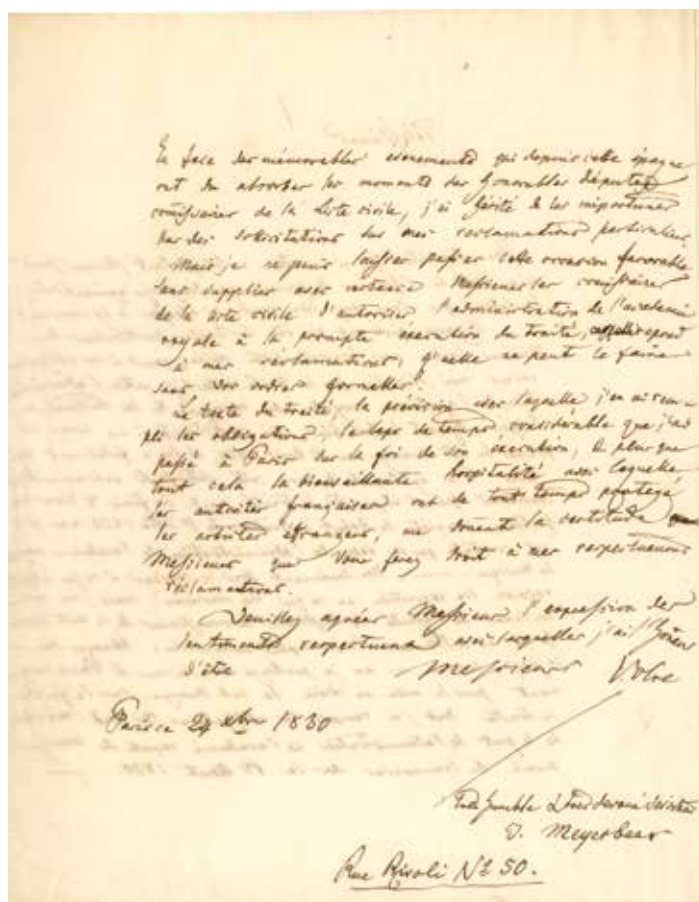 En face des mémorables évenements qui depuis cette époque
ont du absorber les moments des honorables députés
comissaires de la Liste civile, j'ai hésité de les importuner
par des sollicitations sur mes réclamations particulieres.
Mais je ne puis laisser passer cette occasion favorable
sans supplier avec instance Messieurs les comissaires
de la Liste civile d'autoriser l'administration de l'academie
royale à la prompte éxecution du traité, repond
à mes réclamations, qu'elle ne peut le faire
sans vos ordres formelles.
Le texte du traité, la précision avec laquelle j'en ai rem-
pli les obligations, le laps de temps considérable que j'ai
passé à Paris sur la foi de son éxecution, & plus que
tout cela la bienveillante hospitalité avec laquelle
les autorités françaises ont de tout temps protegé
les artistes étrangers, me donent la certitude
Messieurs que Vous ferez droit à mes respectueuses
réclamations.
Veuillez agréer Messieurs l'expression des
sentiments respectueux avec lesquelles j'ai l'honeur
d'être Messieurs Votre
Paris ce 24 xbre 1830
très humble & très devoué serviteur
J. Meyerbeer
Rue Rivoli Nº 50.